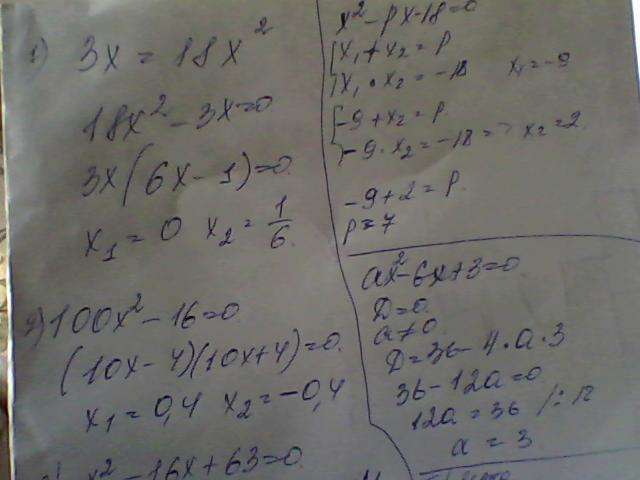 1) 3x = 18x²
18x² - 3x = 0
3x(6x - 1) = 0
x₁ = 0 x₂ = 1/6
2) 100x² - 16 = 0
(10x - 4)(10x + 4) = 0
x₁ = 0,4 x₂ = -0,4
x² - 16x + 63 = 0
x² - px - 18 = 0
{x₁ + x₂ = p
x₁ · x₂ = -18 x₁ = -9
{-9 + x₂ = p
-9 · x₂ = -18 => x₂ = 2
-9 + 2 = p
p = 7
ax² - 6x + 3 = 0
D = 0
a ≠ 0
D = 36 - 4 · a · 3
36 - 12a = 0
12a = 36 / : 12
a = 3